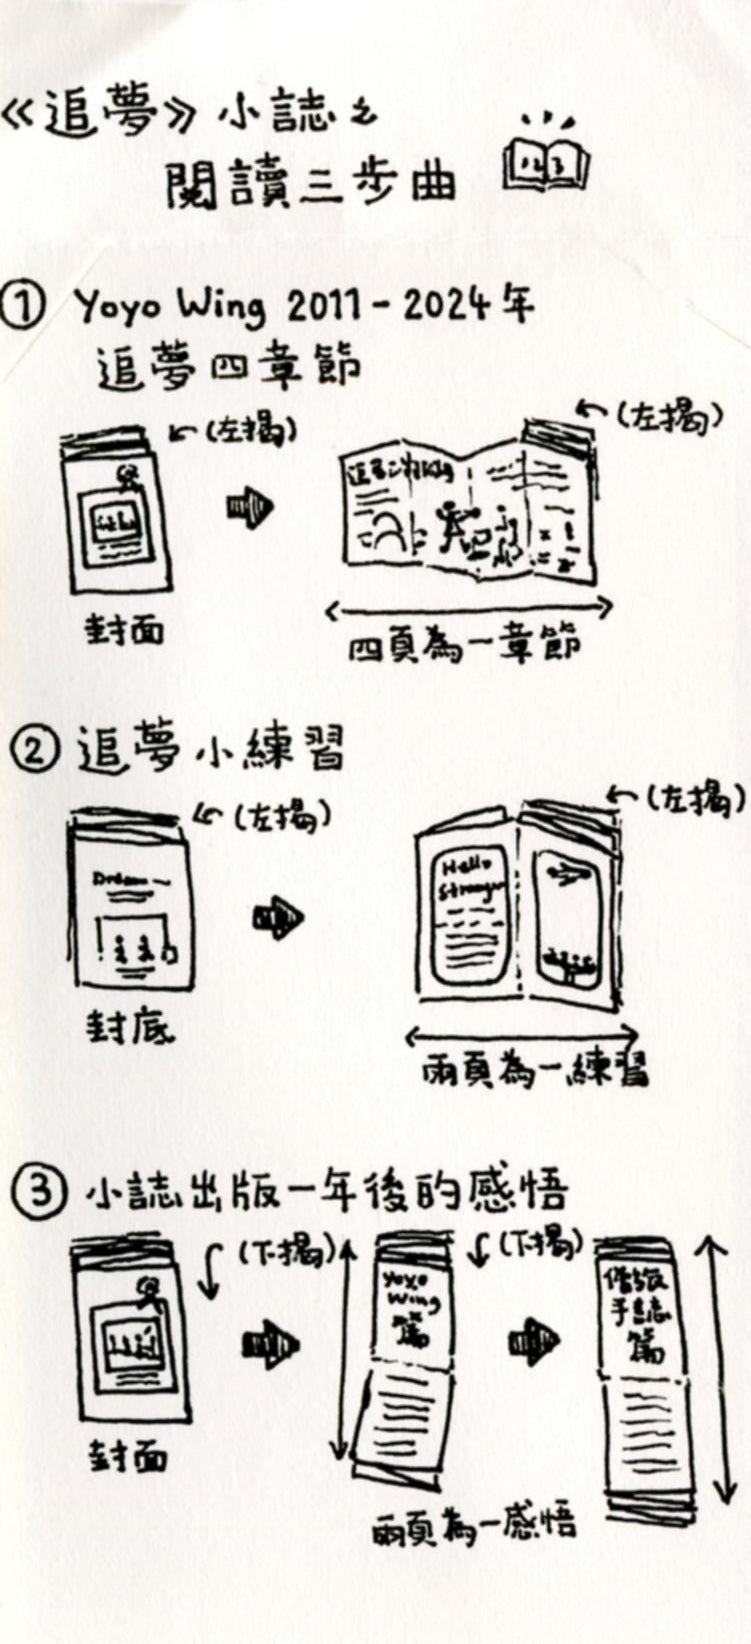 《追夢》小誌之
閱讀三步曲
123
① Yoyo Wing 2011-2024年
追夢四章節
(左揭)
(左揭)
封面
四頁為一章節
② 追夢小練習
(左揭)
(左揭)
Hello
Stranger
封底
兩頁為一練習
③ 小誌出版一年後的感悟
(下揭)
(下揭)
Yoyo
Wing
篇
手誌
篇
封面
兩頁為一感悟